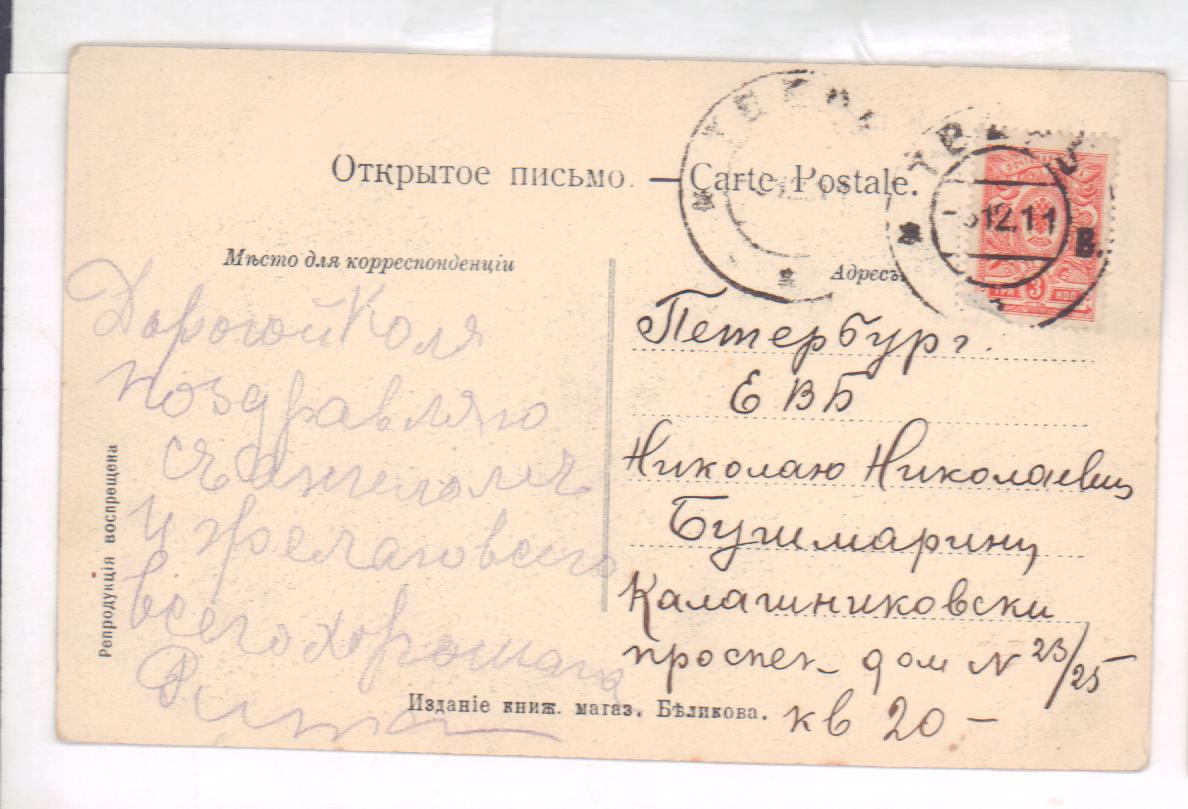 Открытое письмо. — Carte Postale.
Мѣсто для корреспонденціи
Адресъ
ТРИ 3 КОП
12.11
В.
Дорогой Коля
поздравляю
съ ангеломъ
и желаю всего
всего хорошаго
Петербург.
Е В Б
Николаю Николаевич
Бушмарину
Калашниковски
проспек дом N 23/25
кв 20 –
Репродукція воспрещена
Изданіе книж. магаз. Бѣликова.